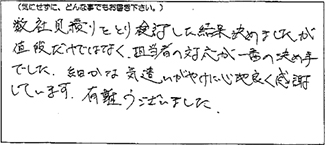 (気にせずに、どんな事でもお書き下さい。)
数社見積りをとり検討した結果決めましたが
値段だけではなく、担当者の対応が一番の決め手
でした。細かな気遣いがやけに心地良く感謝
しています。有難うございました。